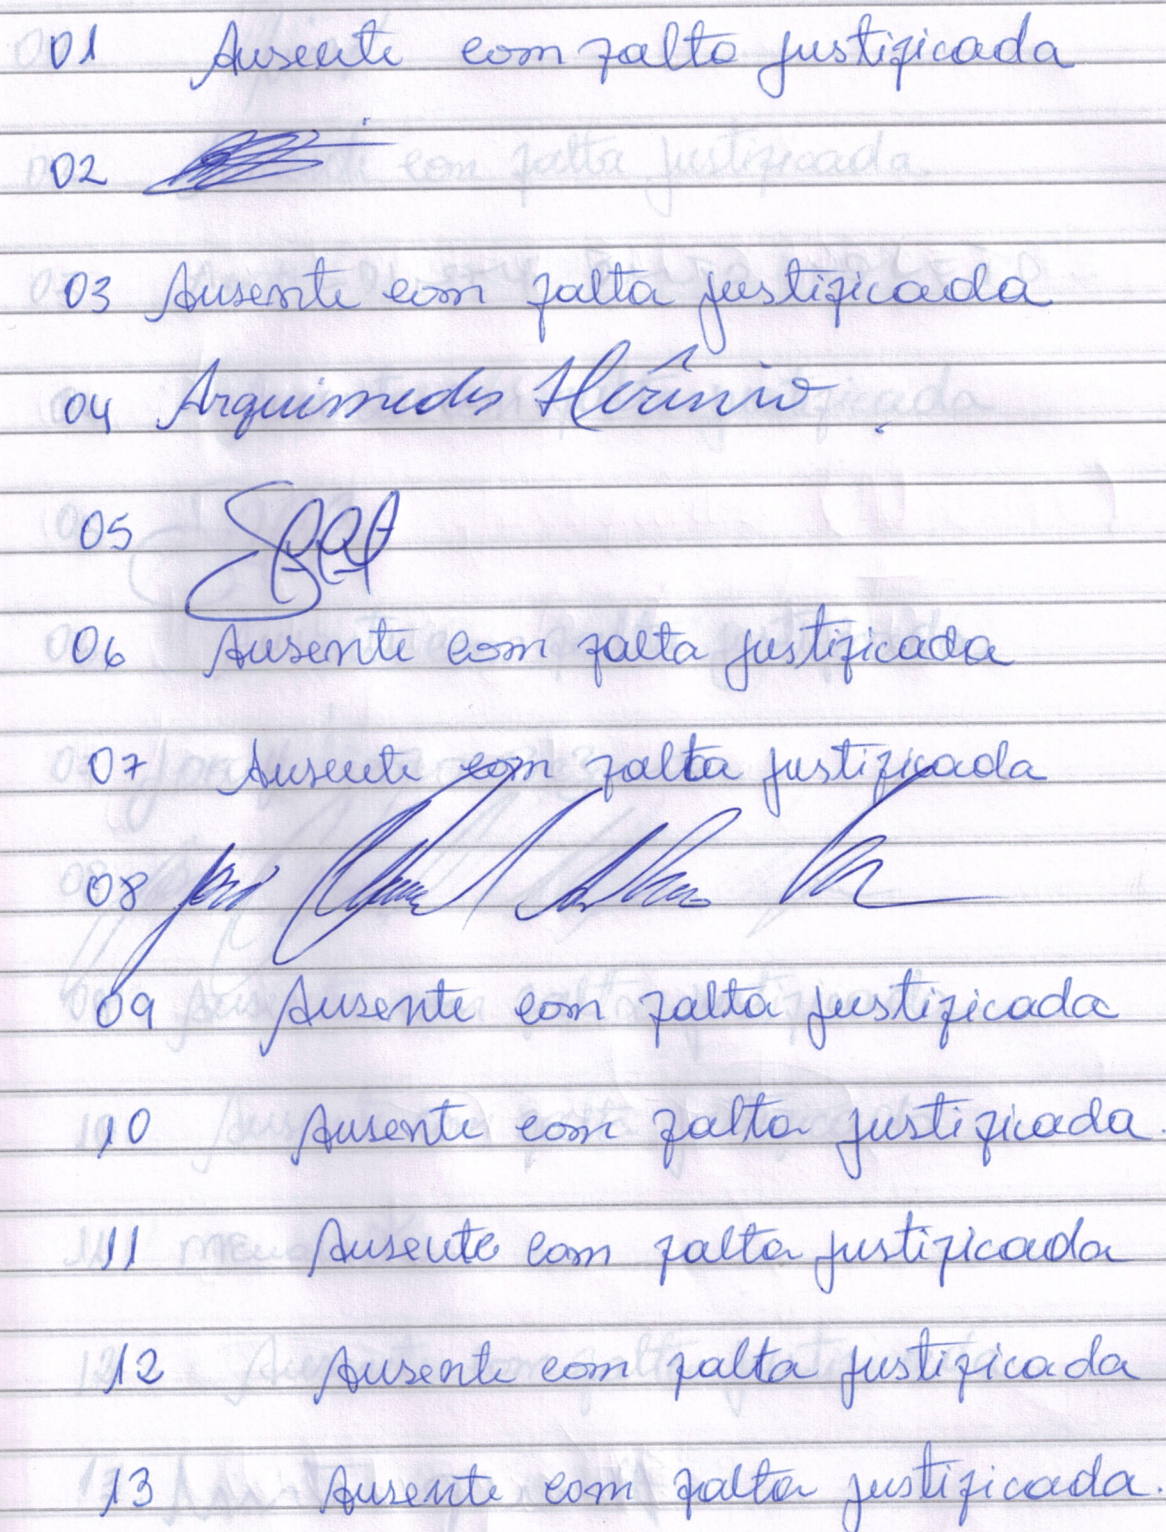 01 Ausente com falta justificada
02
03 Ausente com falta justificada
04 Arquimedes
05
06 Ausente com falta justificada
07 Ausente com falta justificada
08 José
09 Ausente com falta justificada
10 Ausente com falta justificada.
11 Ausente com falta justificada
12 Ausente com falta justificada
13 Ausente com falta justificada.